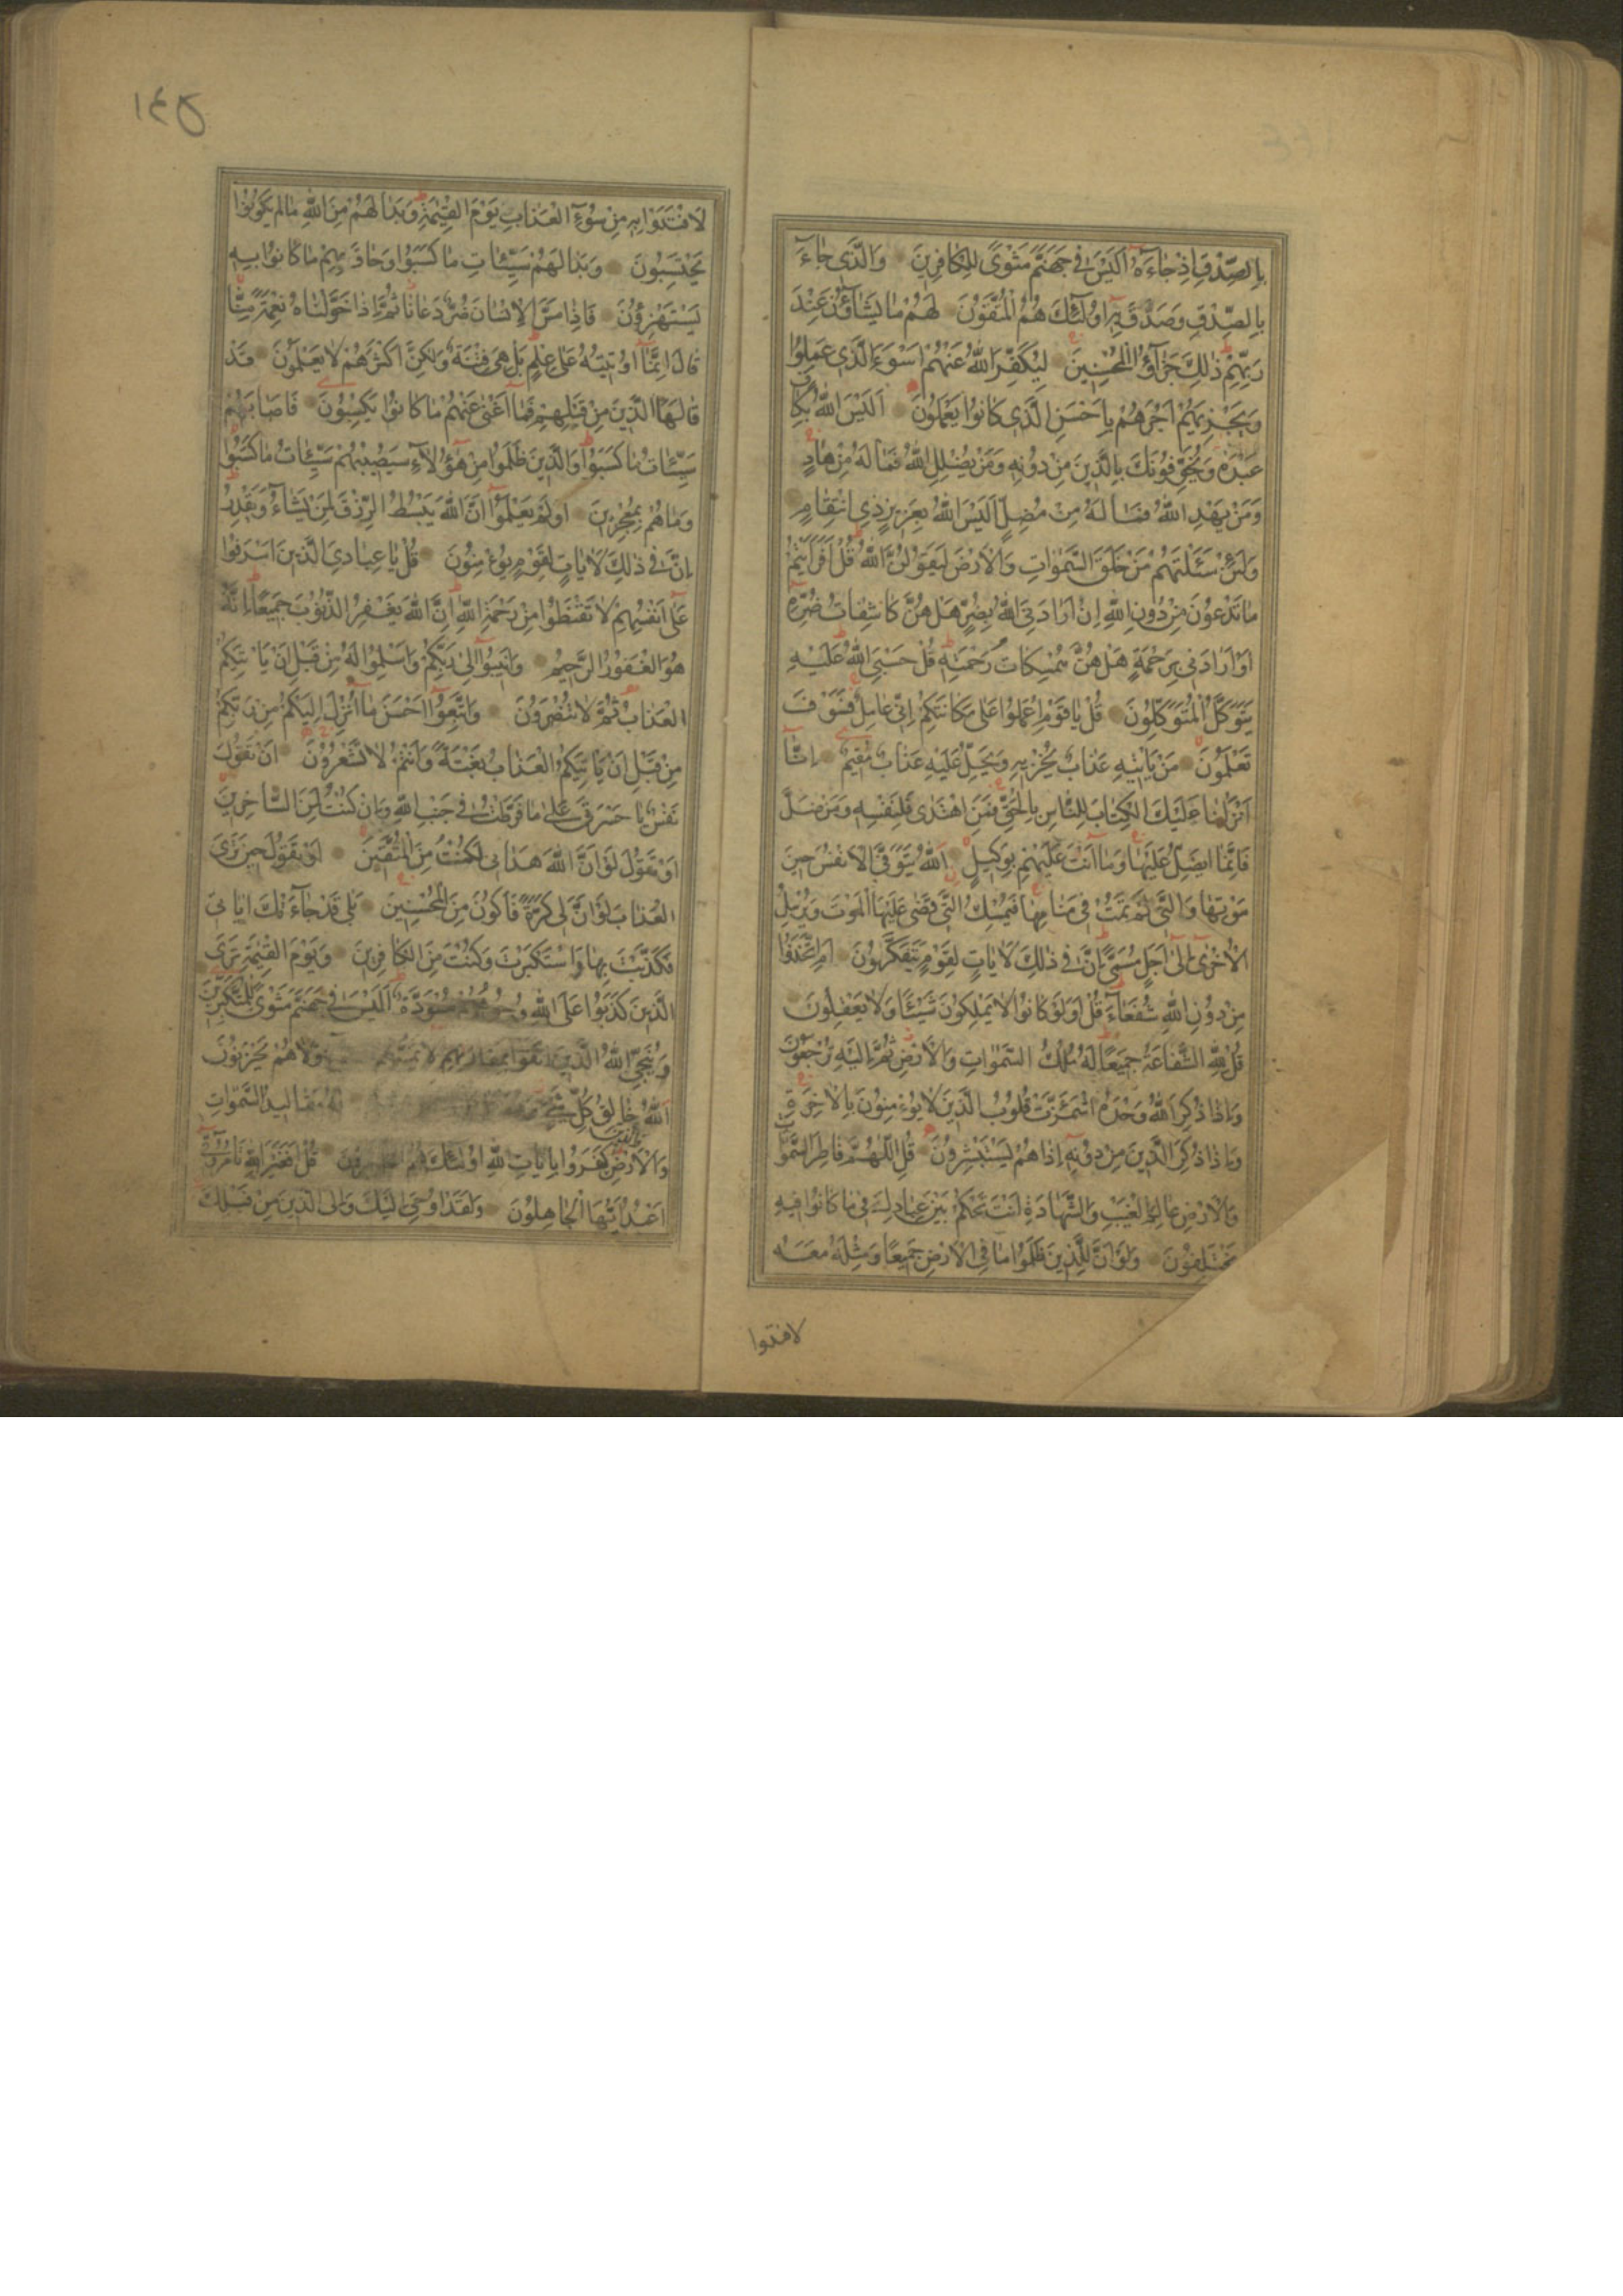 بِالصِّدْقِ اِذْ جٰاءَهُ اَلَيْسَ فى جَهَنَّمَ مَثْوىً لِلْكٰافِرِينَ وَالَّذى جٰاءَ
بِالصِّدْقِ وَصَدَّقَ بِهِ اُولٰئِكَ هُمُ الْمُتَّقُونَ لَهُمْ مٰا يَشٰاؤُنَ عِنْدَ
رَبِّهِمْ ذٰلِكَ جَزٰآؤُا الْمُحْسِنِينَ لِيُكَفِّرَ اللّٰهُ عَنْهُمْ اَسْوَءَ الَّذى عَمِلُوا
وَيَجْزِيَهُمْ اَجْرَهُمْ بِاَحْسَنِ الَّذى كٰانُوا يَعْمَلُونَ اَلَيْسَ اللّٰهُ بِكٰافٍ
عَبْدَهُ وَيُخَوِّفُونَكَ بِالَّذِينَ مِنْ دُونِهِ وَمَنْ يُضْلِلِ اللّٰهُ فَمٰا لَهُ مِنْ هٰادٍ
وَمَنْ يَهْدِ اللّٰهُ فَمٰا لَهُ مِنْ مُضِلٍّ اَلَيْسَ اللّٰهُ بِعَزِيزٍ ذِى انْتِقٰامٍ
وَلَئِنْ سَئَلْتَهُمْ مَنْ خَلَقَ السَّمٰوٰاتِ وَالْاَرْضَ لَيَقُولُنَّ اللّٰهُ قُلْ اَفَرَاَيْتُمْ
مٰا تَدْعُونَ مِنْ دُونِ اللّٰهِ اِنْ اَرٰادَنِىَ اللّٰهُ بِضُرٍّ هَلْ هُنَّ كٰاشِفٰاتُ ضُرِّهِ
اَوْ اَرٰادَنى بِرَحْمَةٍ هَلْ هُنَّ مُمْسِكٰاتُ رَحْمَتِهِ قُلْ حَسْبِىَ اللّٰهُ عَلَيْهِ
يَتَوَكَّلُ الْمُتَوَكِّلُونَ قُلْ يٰا قَوْمِ اعْمَلُوا عَلٰى مَكٰانَتِكُمْ اِنّى عٰامِلٌ فَسَوْفَ
تَعْلَمُونَ مَنْ يَاْتِيهِ عَذٰابٌ يُخْزِيهِ وَيَحِلُّ عَلَيْهِ عَذٰابٌ مُقِيمٌ اِنّٰا
اَنْزَلْنٰا عَلَيْكَ الْكِتٰابَ لِلنّٰاسِ بِالْحَقِّ فَمَنِ اهْتَدٰى فَلِنَفْسِهِ وَمَنْ ضَلَّ
فَاِنَّمٰا يَضِلُّ عَلَيْهٰا وَمٰا اَنْتَ عَلَيْهِمْ بِوَكِيلٍ اَللّٰهُ يَتَوَفَّى الْاَنْفُسَ حِينَ
مَوْتِهٰا وَالَّتى لَمْ تَمُتْ فى مَنٰامِهٰا فَيُمْسِكُ الَّتى قَضٰى عَلَيْهَا الْمَوْتَ وَيُرْسِلُ
الْاُخْرٰى اِلٰى اَجَلٍ مُسَمًّى اِنَّ فى ذٰلِكَ لَاٰيٰاتٍ لِقَوْمٍ يَتَفَكَّرُونَ اَمِ اتَّخَذُوا
مِنْ دُونِ اللّٰهِ شُفَعٰاءَ قُلْ اَوَلَوْ كٰانُوا لٰا يَمْلِكُونَ شَيْئًا وَلٰا يَعْقِلُونَ
قُلْ لِلّٰهِ الشَّفٰاعَةُ جَمِيعًا لَهُ مُلْكُ السَّمٰوٰاتِ وَالْاَرْضِ ثُمَّ اِلَيْهِ تُرْجَعُونَ
وَاِذٰا ذُكِرَ اللّٰهُ وَحْدَهُ اشْمَئَزَّتْ قُلُوبُ الَّذِينَ لٰا يُؤْمِنُونَ بِالْاٰخِرَةِ
وَاِذٰا ذُكِرَ الَّذِينَ مِنْ دُونِهِ اِذٰا هُمْ يَسْتَبْشِرُونَ قُلِ اللّٰهُمَّ فٰاطِرَ السَّمٰوٰاتِ
وَالْاَرْضِ عٰالِمَ الْغَيْبِ وَالشَّهٰادَةِ اَنْتَ تَحْكُمُ بَيْنَ عِبٰادِكَ فى مٰا كٰانُوا فِيهِ
يَخْتَلِفُونَ وَلَوْ اَنَّ لِلَّذِينَ ظَلَمُوا مٰا فِى الْاَرْضِ جَمِيعًا وَمِثْلَهُ مَعَهُ
لافتدوا
١٤٥
لَافْتَدَوْا بِهِ مِنْ سُوءِ الْعَذٰابِ يَوْمَ الْقِيٰمَةِ وَبَدٰا لَهُمْ مِنَ اللّٰهِ مٰا لَمْ يَكُونُوا
يَحْتَسِبُونَ وَبَدٰا لَهُمْ سَيِّئٰاتُ مٰا كَسَبُوا وَحٰاقَ بِهِمْ مٰا كٰانُوا بِهِ
يَسْتَهْزِؤُنَ فَاِذٰا مَسَّ الْاِنْسٰانَ ضُرٌّ دَعٰانٰا ثُمَّ اِذٰا خَوَّلْنٰاهُ نِعْمَةً مِنّٰا
قٰالَ اِنَّمٰا اُوتِيتُهُ عَلٰى عِلْمٍ بَلْ هِىَ فِتْنَةٌ وَلٰكِنَّ اَكْثَرَهُمْ لٰا يَعْلَمُونَ قَدْ
قٰالَهَا الَّذِينَ مِنْ قَبْلِهِمْ فَمٰا اَغْنٰى عَنْهُمْ مٰا كٰانُوا يَكْسِبُونَ فَاَصٰابَهُمْ
سَيِّئٰاتُ مٰا كَسَبُوا وَالَّذِينَ ظَلَمُوا مِنْ هٰؤُلٰاءِ سَيُصِيبُهُمْ سَيِّئٰاتُ مٰا كَسَبُوا
وَمٰا هُمْ بِمُعْجِزِينَ اَوَلَمْ يَعْلَمُوا اَنَّ اللّٰهَ يَبْسُطُ الرِّزْقَ لِمَنْ يَشٰاءُ وَيَقْدِرُ
اِنَّ فى ذٰلِكَ لَاٰيٰاتٍ لِقَوْمٍ يُؤْمِنُونَ قُلْ يٰا عِبٰادِىَ الَّذِينَ اَسْرَفُوا
عَلٰى اَنْفُسِهِمْ لٰا تَقْنَطُوا مِنْ رَحْمَةِ اللّٰهِ اِنَّ اللّٰهَ يَغْفِرُ الذُّنُوبَ جَمِيعًا اِنَّهُ
هُوَ الْغَفُورُ الرَّحِيمُ وَاَنِيبُوا اِلٰى رَبِّكُمْ وَاَسْلِمُوا لَهُ مِنْ قَبْلِ اَنْ يَاْتِيَكُمُ
الْعَذٰابُ ثُمَّ لٰا تُنْصَرُونَ وَاتَّبِعُوا اَحْسَنَ مٰا اُنْزِلَ اِلَيْكُمْ مِنْ رَبِّكُمْ
مِنْ قَبْلِ اَنْ يَاْتِيَكُمُ الْعَذٰابُ بَغْتَةً وَاَنْتُمْ لٰا تَشْعُرُونَ اَنْ تَقُولَ
نَفْسٌ يٰا حَسْرَتٰى عَلٰى مٰا فَرَّطْتُ فى جَنْبِ اللّٰهِ وَاِنْ كُنْتُ لَمِنَ السّٰاخِرِينَ
اَوْ تَقُولَ لَوْ اَنَّ اللّٰهَ هَدٰانى لَكُنْتُ مِنَ الْمُتَّقِينَ اَوْ تَقُولَ حِينَ تَرَى
الْعَذٰابَ لَوْ اَنَّ لى كَرَّةً فَاَكُونَ مِنَ الْمُحْسِنِينَ بَلٰى قَدْ جٰاءَتْكَ اٰيٰاتى
فَكَذَّبْتَ بِهٰا وَاسْتَكْبَرْتَ وَكُنْتَ مِنَ الْكٰافِرِينَ وَيَوْمَ الْقِيٰمَةِ تَرَى
الَّذِينَ كَذَبُوا عَلَى اللّٰهِ وُجُوهُهُمْ مُسْوَدَّةٌ اَلَيْسَ فى جَهَنَّمَ مَثْوىً لِلْمُتَكَبِّرِينَ
وَيُنَجِّى اللّٰهُ الَّذِينَ اتَّقَوْا بِمَفٰازَتِهِمْ لٰا يَمَسُّهُمُ وَلٰا هُمْ يَحْزَنُونَ
اَللّٰهُ خٰالِقُ كُلِّ شَىْءٍ لَهُ مَقٰالِيدُ السَّمٰوٰاتِ
وَالْاَرْضِ وَالَّذِينَ كَفَرُوا بِاٰيٰاتِ اللّٰهِ اُولٰئِكَ هُمُ الْخٰاسِرُونَ قُلْ اَفَغَيْرَ اللّٰهِ تَاْمُرُونّى
اَعْبُدُ اَيُّهَا الْجٰاهِلُونَ وَلَقَدْ اُوحِىَ اِلَيْكَ وَاِلَى الَّذِينَ مِنْ قَبْلِكَ